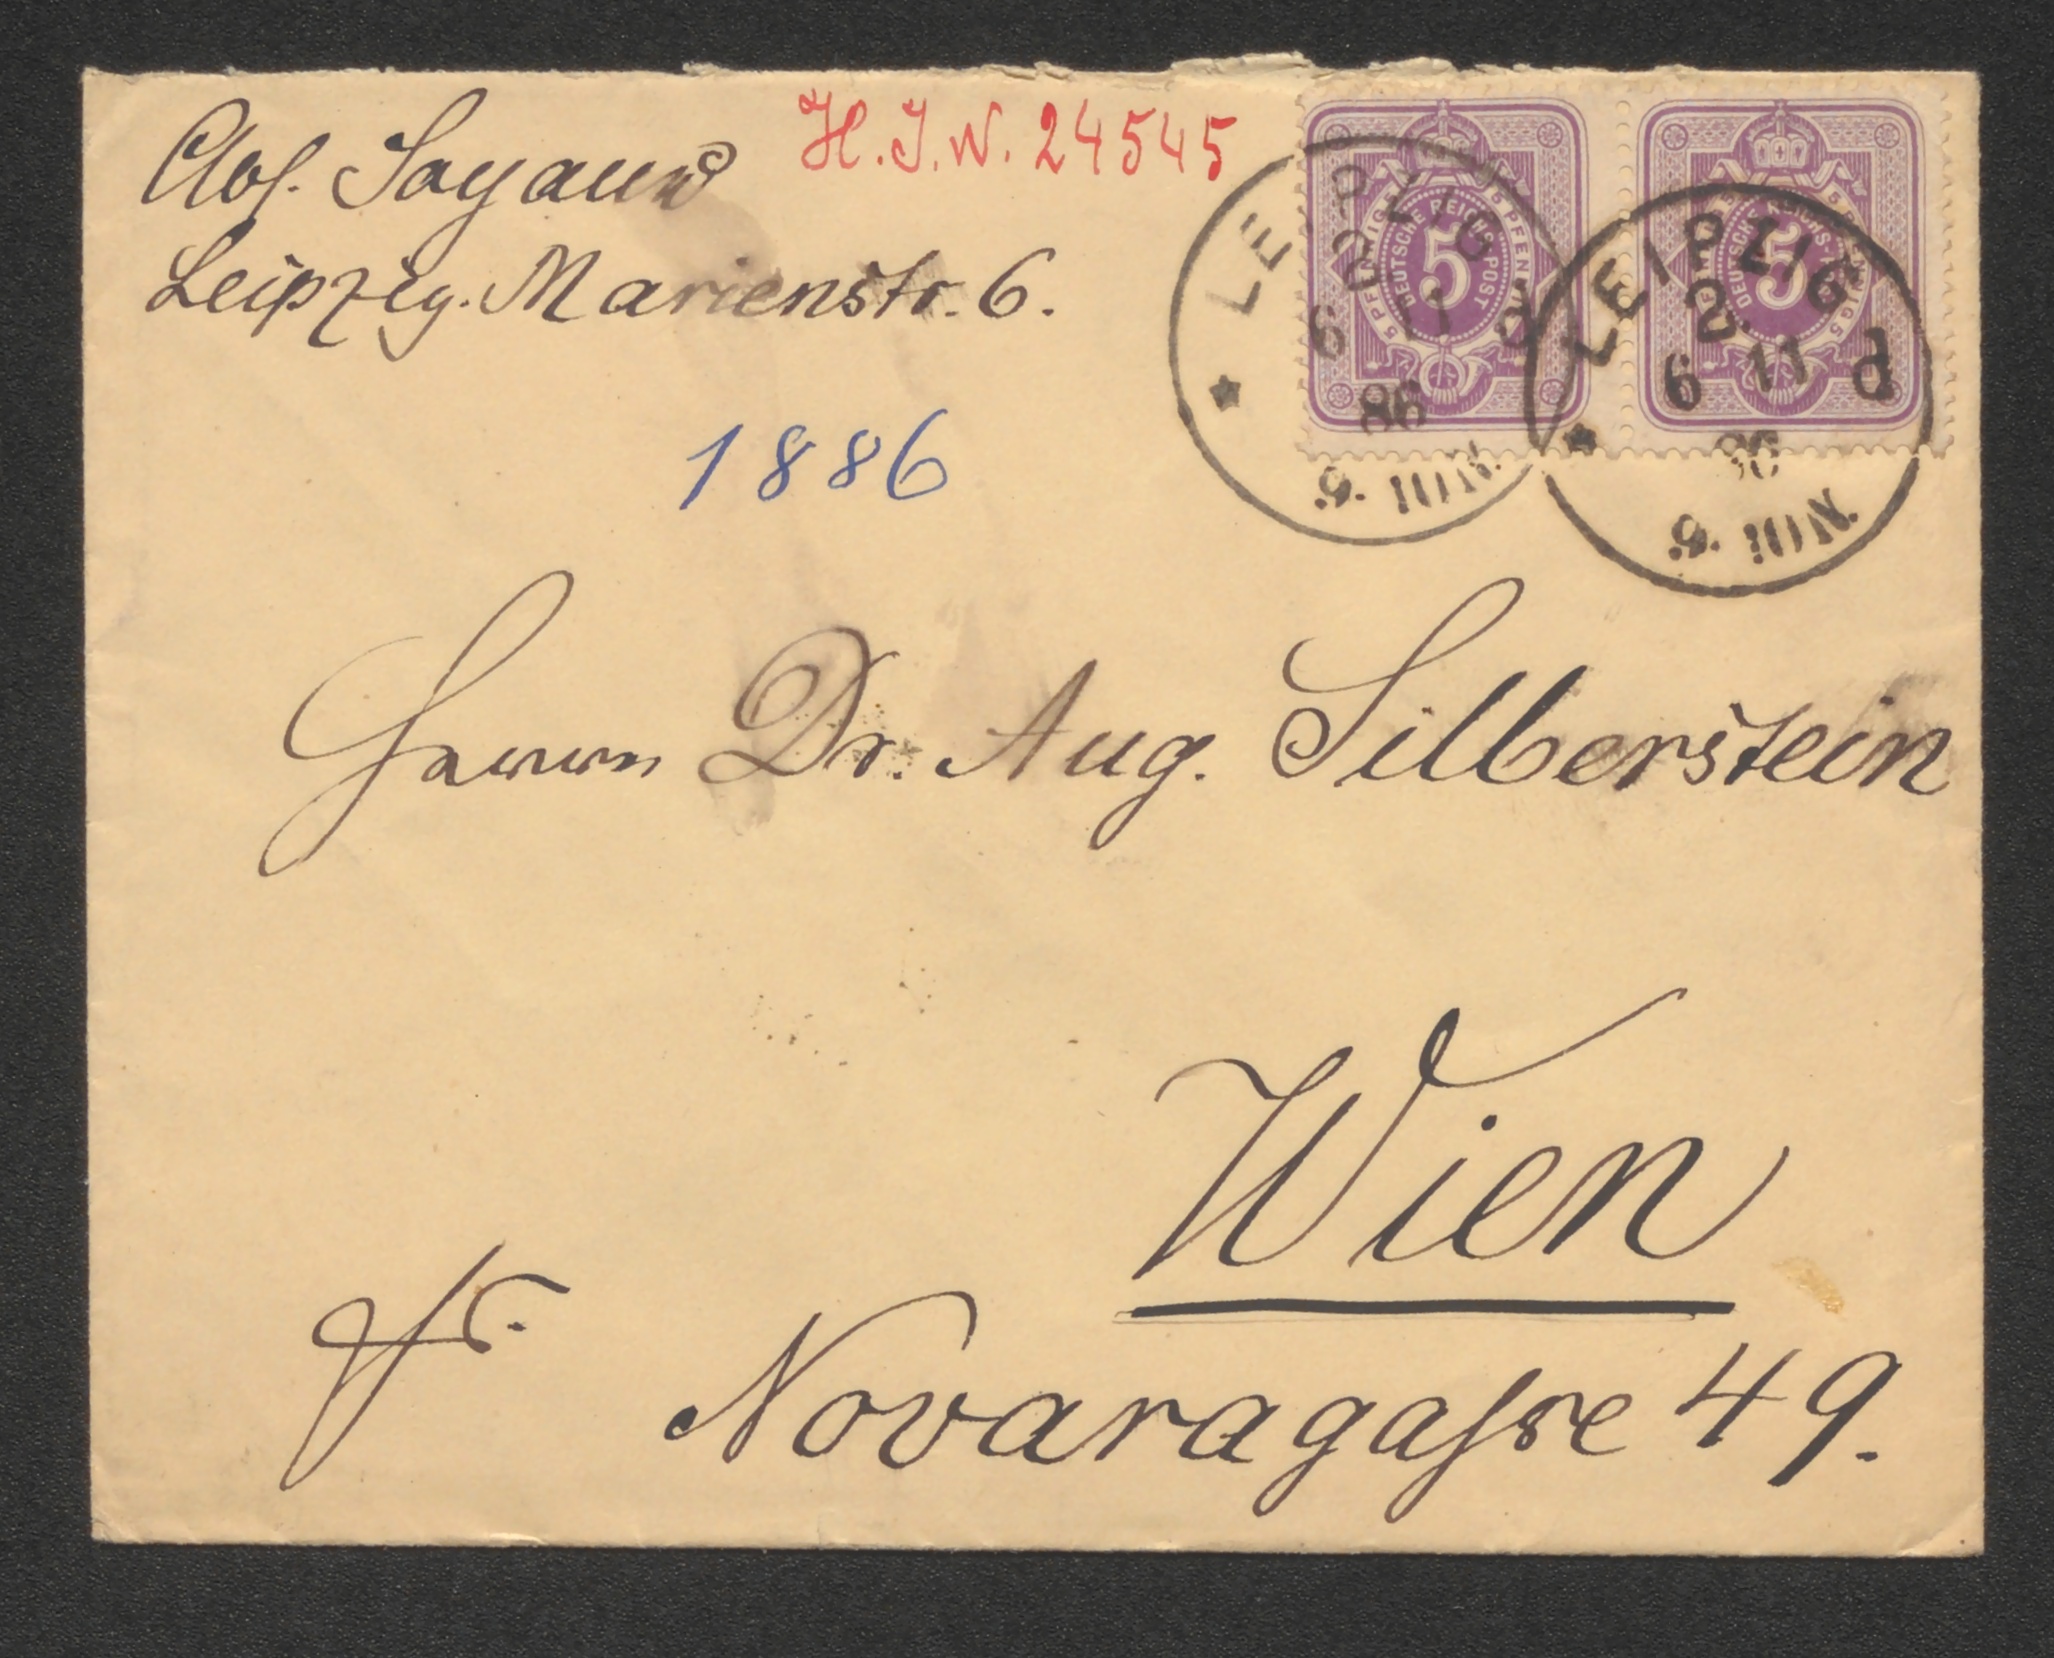 Abs. Sayaun
Leipzig. Marienstr. 6.
H.I.N. 24545
1886
5 PFENNIG 5 PFENNIG
DEUTSCHE REICHS-POST
5
5 PFENNIG 5 PFENNIG
DEUTSCHE REICHS-POST
5
LEIPZIG
2.
6 11
86
5. JUN.
LEIPZIG
2.
6 11
86
5. JUN.
Herrn Dr. Aug. Silberstein
Wien
fr.
Novaragasse 49.